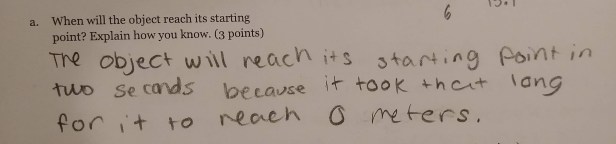 6
a. When will the object reach its starting
point? Explain how you know. (3 points)
The object will reach its starting point in
two seconds because it took that long
for it to reach 0 meters.